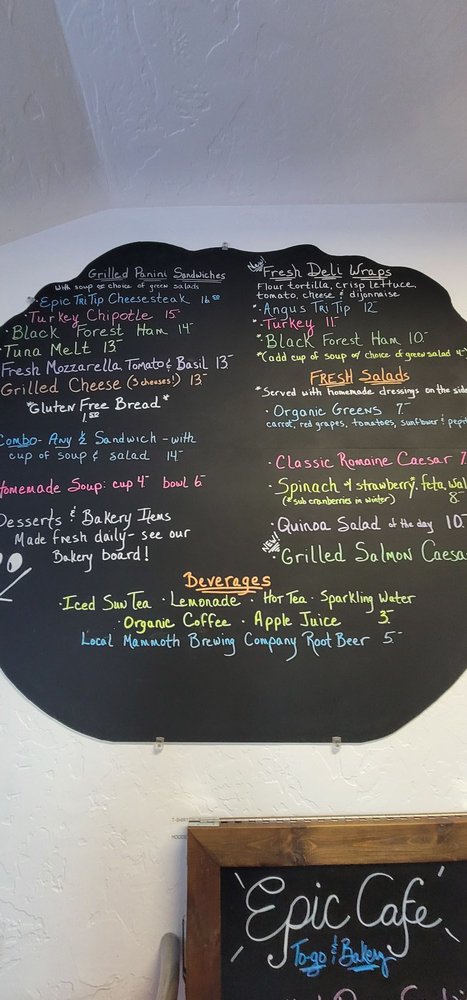 Grilled Panini Sandwiches
with soup or choice of green salads
Epic Tri Tip Cheesesteak 16.50
Turkey Chipotle 15-
Black Forest Ham 14-
Tuna Melt 13-
Fresh Mozzarella, Tomato & Basil 13-
Grilled Cheese (3 cheeses!) 13-
*Gluten Free Bread*
1.50
Combo- Any ½ Sandwich - with
cup of soup & salad 14-
Homemade Soup: cup 4- bowl 6-
Desserts & Bakery Items
Made fresh daily- see our
Bakery board!
New!
Fresh Deli Wraps
Flour tortilla, crisp lettuce,
tomato, cheese & dijonnaise
Angus Tri Tip 12-
Turkey 11-
Black Forest Ham 10-
*(add cup of soup or choice of green salad 4-
FRESH Salads
*Served with homemade dressings on the side
Organic Greens 7-
carrot, red grapes, tomatoes, sunflower & pepit
Classic Romaine Caesar 7
Spinach & strawberry, feta, wal
(*sub cranberries in winter) 8-
Quinoa Salad of the day 10-
NEW!
Grilled Salmon Caesa
Beverages
Iced Sun Tea · Lemonade · Hot Tea · Sparkling Water
Organic Coffee · Apple Juice 3-
Local Mammoth Brewing Company Root Beer 5-
T-SHIRT
HOODIE
Epic Cafe
To-go & Bakery